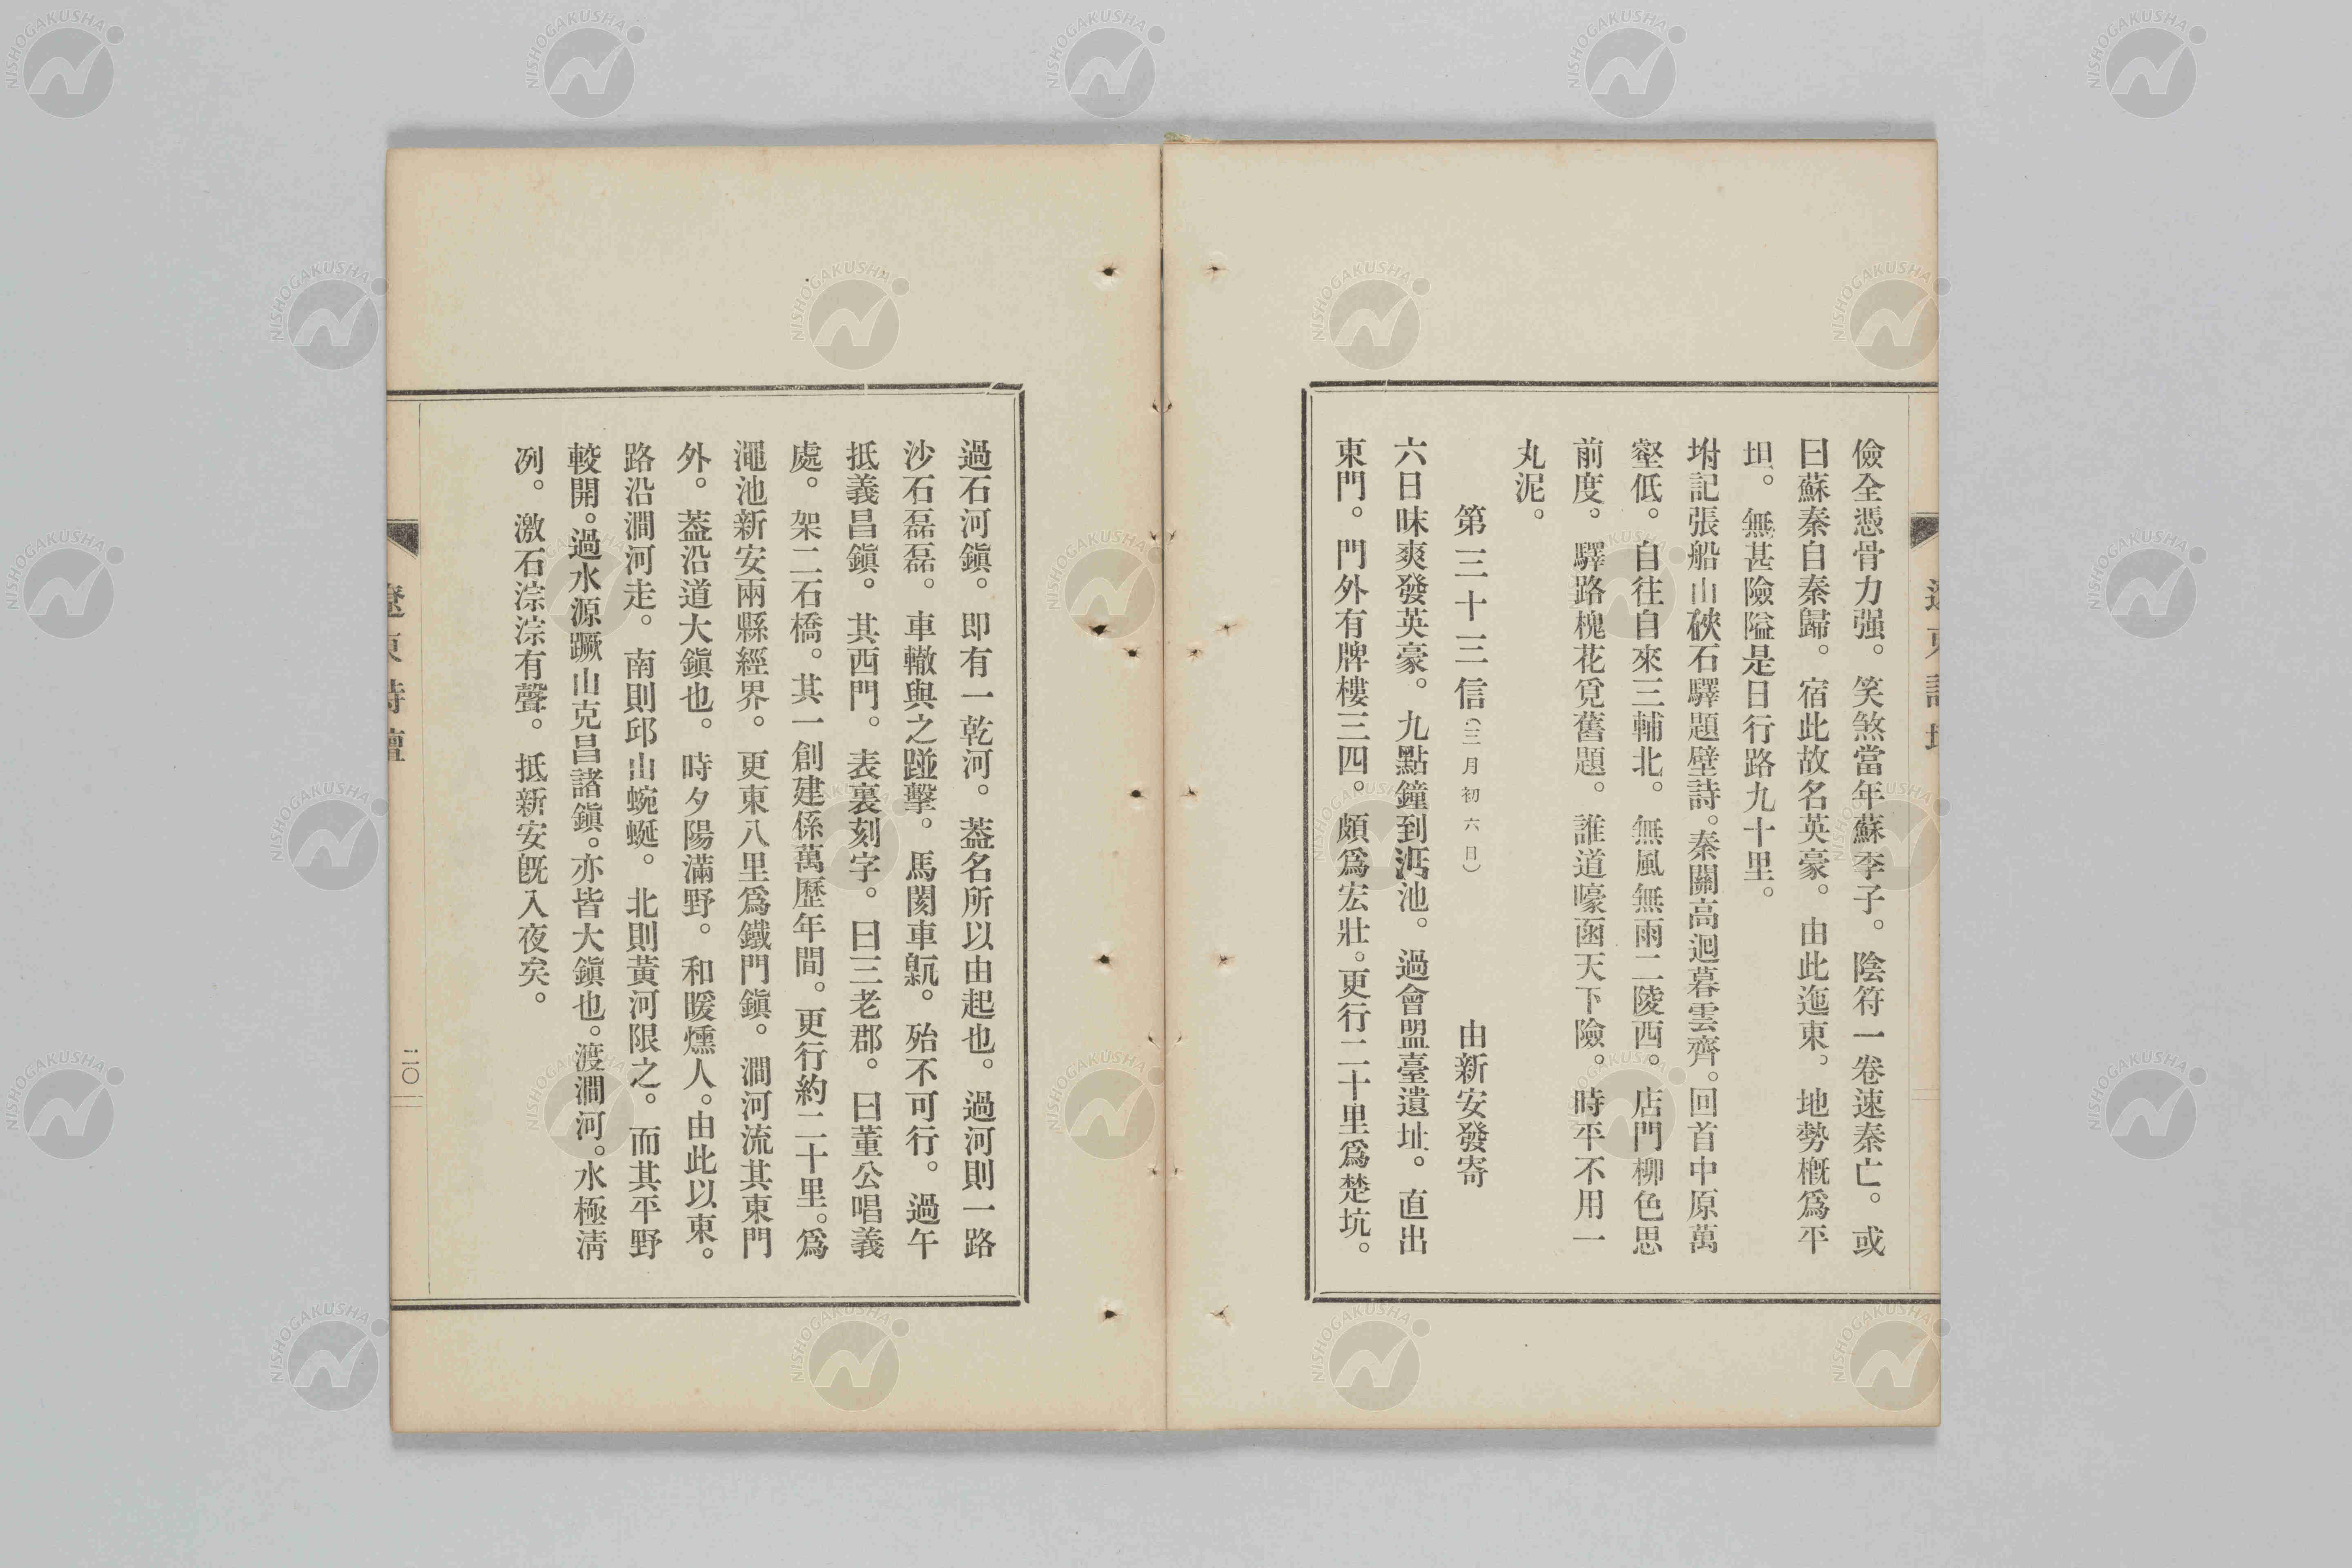 儉全憑骨力强。笑煞當年蘇季子。陰符一卷速秦亡。或
曰蘇秦自秦歸。宿此故名英豪。由此迤東。地勢槪爲平
坦。無甚險隘是日行路九十里。
坿記張船山硤石驛題壁詩。秦關高迥暮雲齊。回首中原萬
壑低。自往自來三輔北。無風無雨二陵西。店門柳色思
前度。驛路槐花覓舊題。誰道崤函天下險。時平不用一
丸泥。
第三十三信（三月初六日）　由新安發寄
六日昧爽發英豪。九點鐘到澠池。過會盟臺遺址。直出
東門。門外有牌樓三四。頗爲宏壯。更行二十里爲楚坑。
過石河鎭。即有一乾河。葢名所以由起也。過河則一路
沙石磊磊。車轍與之踫擊。馬閡車翫。殆不可行。過午
抵義昌鎭。其西門。表裏刻字。曰三老郡。曰董公唱義
處。架二石橋。其一創建係萬歷年間。更行約二十里。爲
澠池新安兩縣經界。更東八里爲鐵門鎭。澗河流其東門
外。葢沿道大鎭也。時夕陽滿野。和暖燻人。由此以東。
路沿澗河走。南則邱山蜿蜒。北則黃河限之。而其平野
較開。過水源蹶山克昌諸鎭。亦皆大鎭也。渡澗河。水極淸
冽。激石淙淙有聲。抵新安既入夜矣。
遼東詩壇
二〇
NISHOGAKUSHA